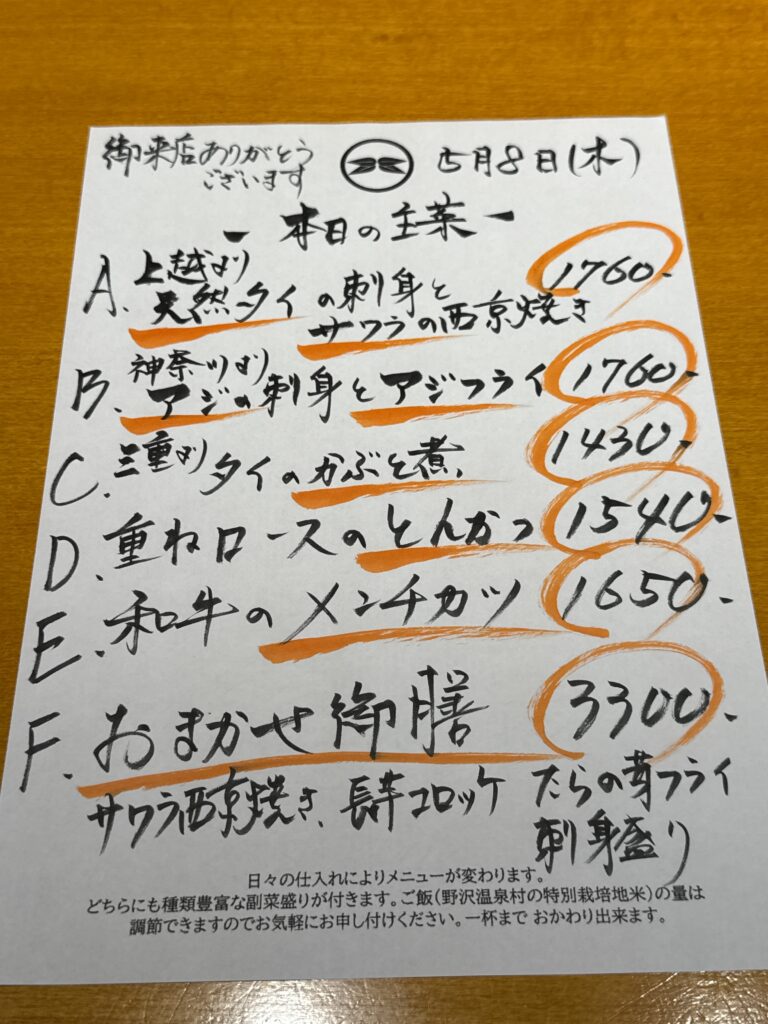 御来店ありがとう
ございます
5月8日(木)
- 本日の主菜 -
A. 上越より
天然タイの刺身と
サワラの西京焼き 1760-
B. 神奈川より
アジの刺身とアジフライ 1760-
C. 三重より タイのかぶと煮 1430-
D. 重ねロースのとんかつ 1540-
E. 和牛のメンチカツ 1650-
F. おまかせ御膳 3300-
サワラ西京焼き、長芋コロッケ たらの芽フライ
刺身盛り
日々の仕入れによりメニューが変わります。
どちらにも種類豊富な副菜盛りが付きます。ご飯(野沢温泉村の特別栽培地米)の量は
調節できますのでお気軽にお申し付けください。一杯まで おかわり出来ます。